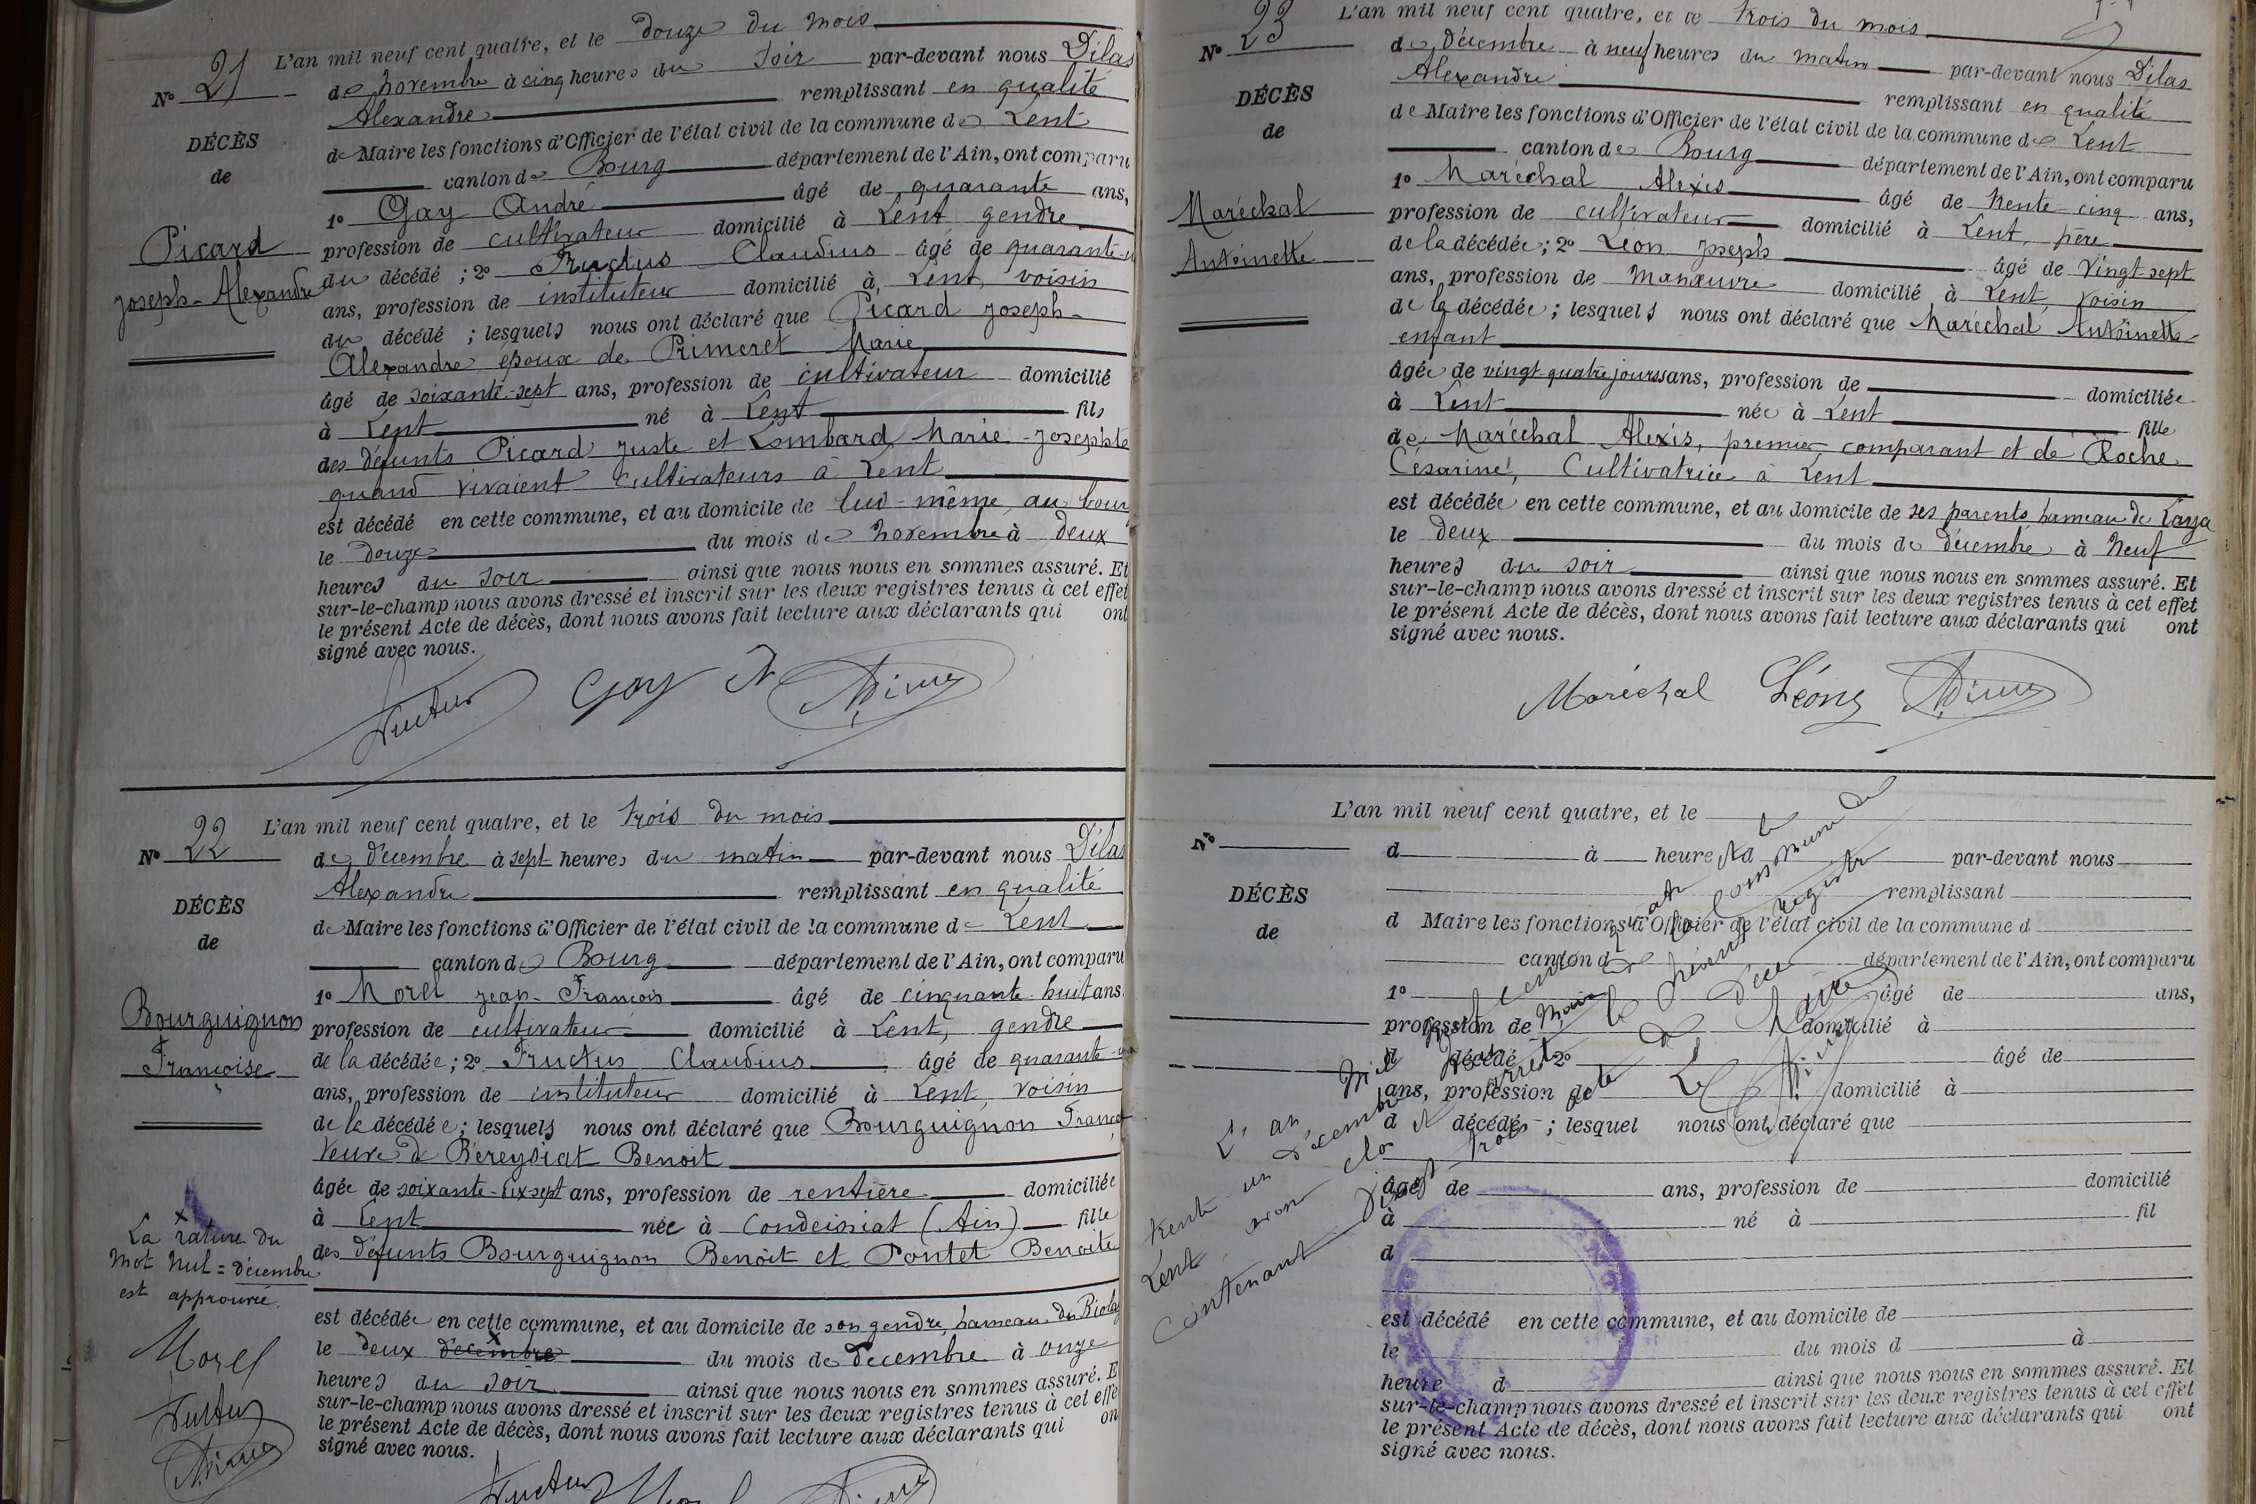 N° 21
DÉCÈS
de
Picard
Joseph-Alexandre
L'an mil neuf cent quatre, et le douze du mois
de novembre à cinq heures du soir par-devant nous Dilas
Alexandre remplissant en qualité
de Maire les fonctions d'Officier de l'état civil de la commune de Lent
canton de Bourg département de l'Ain, ont comparu
1° Gay André âgé de quarante ans,
profession de cultivateur domicilié à Lent gendre
du décédé ; 2° Fructus Claudius âgé de quarante-
ans, profession de instituteur domicilié à Lent, voisin
du décédé ; lesquels nous ont déclaré que Picard Joseph-
Alexandre époux de Primeret Marie
âgé de soixante-sept ans, profession de cultivateur domicilié
à Lent né à Lent fils
des défunts Picard Juste et Lombard Marie-Josephte
quand vivaient cultivateurs à Lent
est décédé en cette commune, et au domicile de lui-même, au bourg
le douze du mois de novembre à deux
heures du soir ainsi que nous nous en sommes assuré. Et
sur-le-champ nous avons dressé et inscrit sur les deux registres tenus à cet effet
le présent Acte de décès, dont nous avons fait lecture aux déclarants qui ont
signé avec nous.
Fructus Gay A Dilas
N° 22
DÉCÈS
de
Bourguignon
Françoise
L'an mil neuf cent quatre, et le trois du mois
de décembre à sept heures du matin par-devant nous Dilas
Alexandre remplissant en qualité
de Maire les fonctions d'Officier de l'état civil de la commune de Lent
canton de Bourg département de l'Ain, ont comparu
1° Morel Jean-François âgé de cinquante-huit ans
profession de cultivateur domicilié à Lent, gendre
de la décédée ; 2° Fructus Claudius âgé de quarante-
ans, profession de instituteur domicilié à Lent, voisin
de la décédée ; lesquels nous ont déclaré que Bourguignon França
veuve de Béreyziat Benoit
âgée de soixante-dix-sept ans, profession de rentière domiciliée
à Lent née à Condeissiat (Ain) fille
des défunts Bourguignon Benoît et Pontet Benoite
est décédée en cette commune, et au domicile de son gendre, hameau du Riola
le deux décembre du mois de décembre à onze
heures du soir ainsi que nous nous en sommes assuré. E
sur-le-champ nous avons dressé et inscrit sur les deux registres tenus à cet effe
le présent Acte de décès, dont nous avons fait lecture aux déclarants qui on
signé avec nous.
x
La rature du
mot nul = décembre
est approuvée.
Morel
Fructus
Dilas
Fructus Morel Dilas
N° 23
DÉCÈS
de
Maréchal
Antoinette
L'an mil neuf cent quatre, et le trois du mois
de décembre à neuf heures du matin par-devant nous Dilas
Alexandre remplissant en qualité
de Maire les fonctions d'Officier de l'état civil de la commune de Lent
canton de Bourg département de l'Ain, ont comparu
1° Maréchal Alexis âgé de trente cinq ans,
profession de cultivateur domicilié à Lent, père
de la décédée ; 2° Léon Joseph âgé de vingt-sept
ans, profession de manœuvre domicilié à Lent, voisin
de la décédée ; lesquels nous ont déclaré que Maréchal Antoinette
enfant
âgée de vingt-quatre jours ans, profession de domiciliée
à Lent née à Lent fille
de Maréchal Alexis, premier comparant et de Roche
Césarine, cultivatrice à Lent
est décédée en cette commune, et au domicile de ses parents hameau de Laya
le deux du mois de décembre à neuf
heures du soir ainsi que nous nous en sommes assuré. Et
sur-le-champ nous avons dressé et inscrit sur les deux registres tenus à cet effet
le présent Acte de décès, dont nous avons fait lecture aux déclarants qui ont
signé avec nous.
Maréchal Léon J Dilas
N°
DÉCÈS
de
L'an mil neuf cent quatre, et le
d à heure d par-devant nous
remplissant
d Maire les fonctions d'Officier de l'état civil de la commune d
canton d département de l'Ain, ont comparu
1° âgé de ans,
profession de domicilié à
d décédé 2° âgé de
ans, profession de domicilié à
d décédé ; lesquel nous ont déclaré que
âgé de ans, profession de domicilié
à né à fil
d
est décédé en cette commune, et au domicile de
le du mois d à
heure d ainsi que nous nous en sommes assuré. Et
sur-le-champ nous avons dressé et inscrit sur les deux registres tenus à cet effet
le présent Acte de décès, dont nous avons fait lecture aux déclarants qui ont
signé avec nous.
L'an mil neuf cent quatre le
trente un décembre Nous Maire de la commune de
Lent, avons clos et arrêté le présent registre
contenant vingt trois actes de décès
Le Maire
Dilas